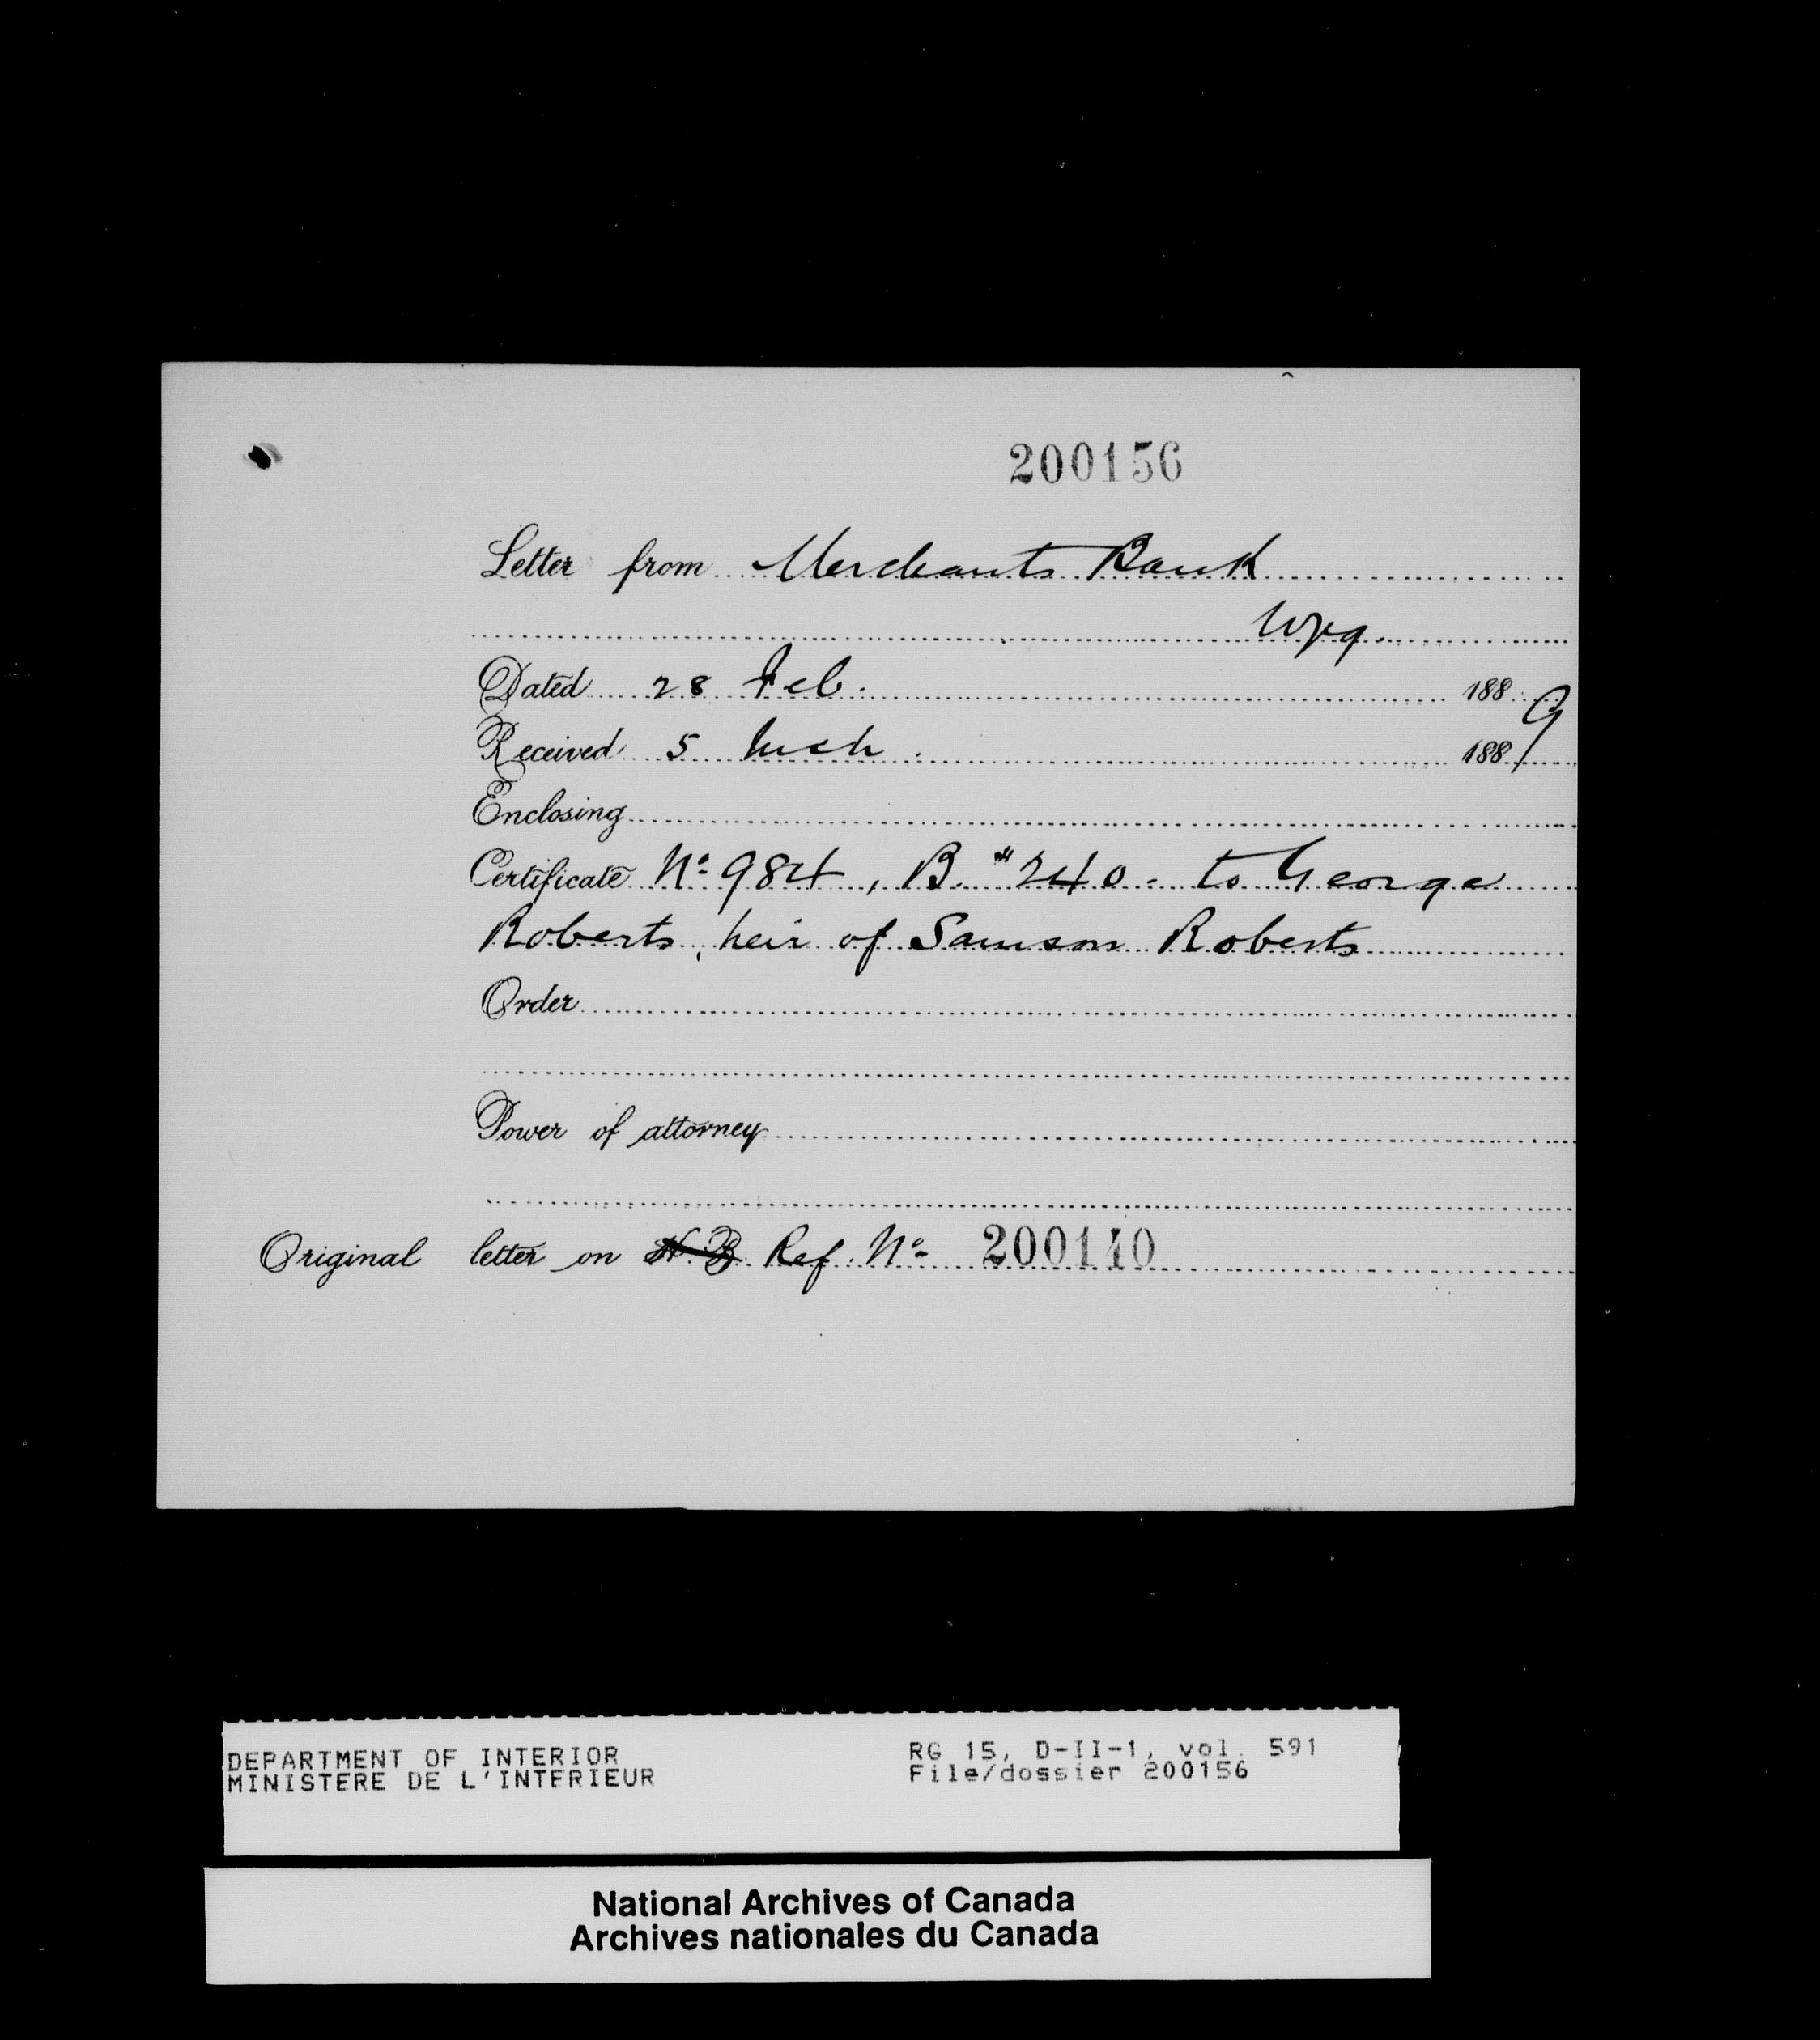 200156
Letter from Merchants Bank
Wpg.
Dated 28 Feb. 188
9
Received 5 Mch. 188
Enclosing
Certificate No. 984, B. "240. to George
Roberts, heir of Samson Roberts
Order
Power of attorney
Original letter on N.B. Ref. No. 200140
DEPARTMENT OF INTERIOR
MINISTERE DE L'INTERIEUR
RG 15, D-II-1, vol. 591
File/dossier 200156
National Archives of Canada
Archives nationales du Canada